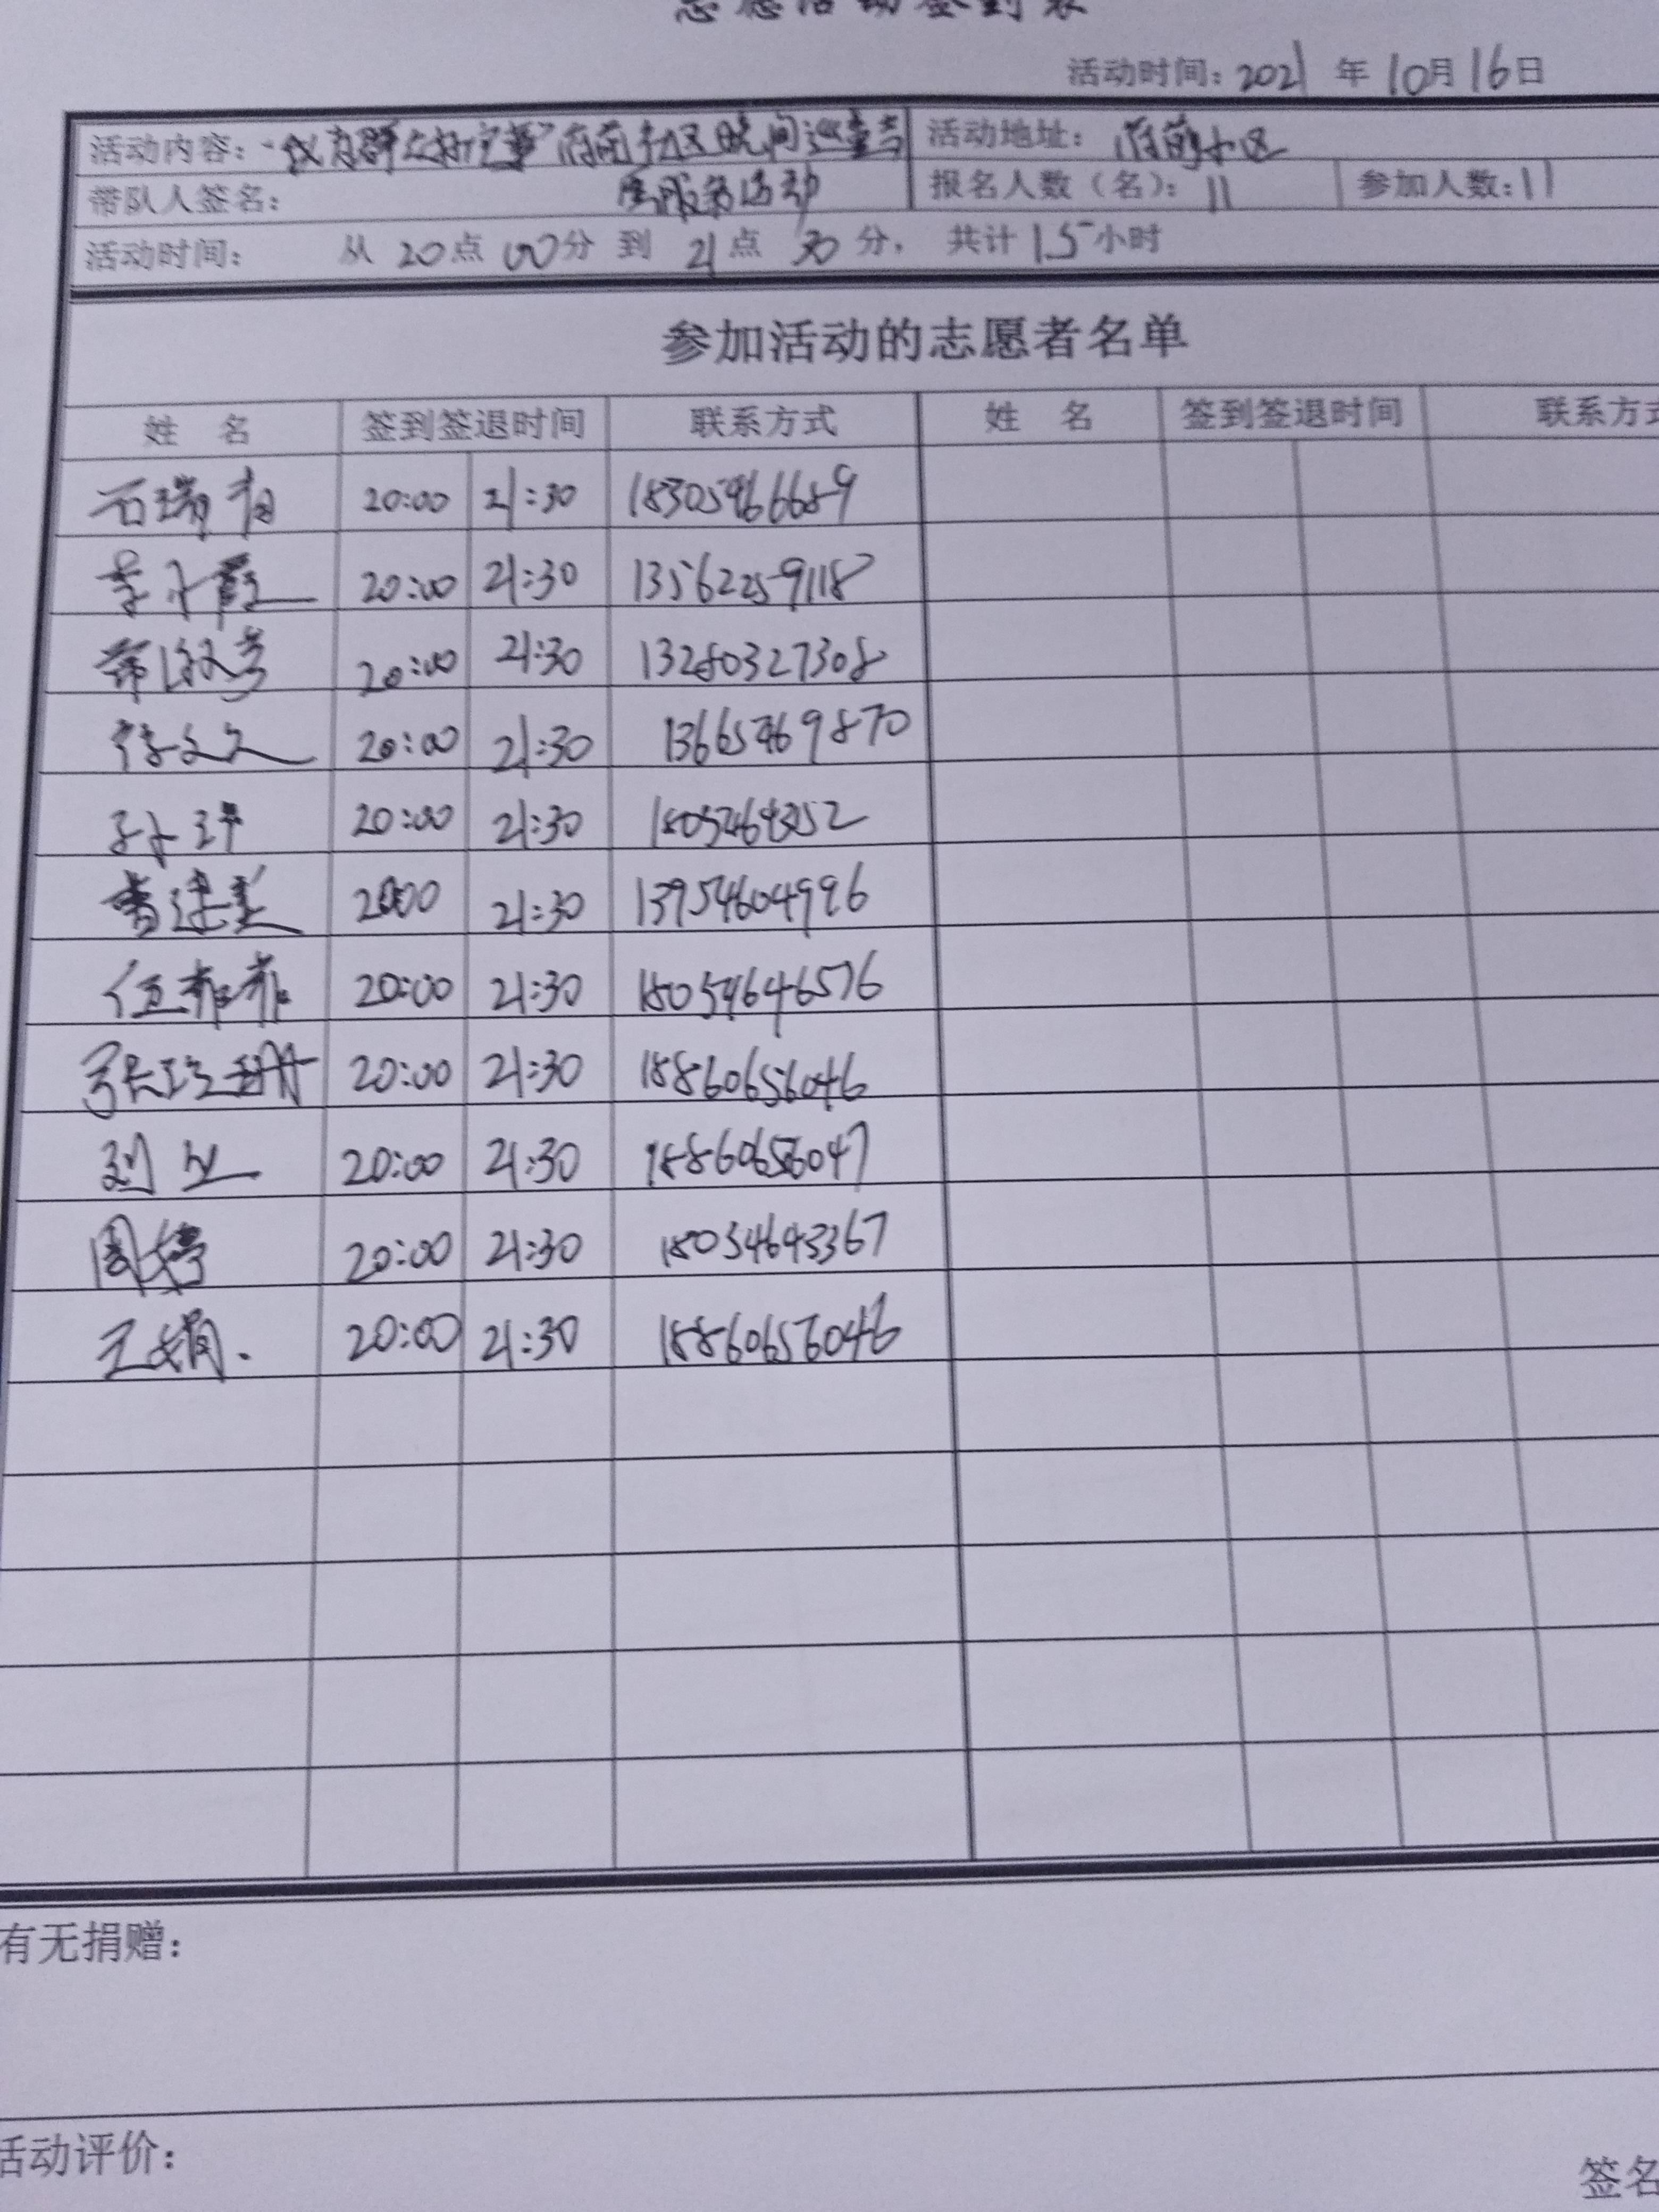 志愿活动签到表
活动时间：2021 年 10月 16日
活动内容："我为群众办实事"府前社区晚间巡查志 活动地址：府前小区
愿服务活动
带队人签名： 报名人数（名）：11 参加人数：11
活动时间： 从 20 点 00 分 到 21 点 30 分， 共计 1.5 小时
参加活动的志愿者名单
姓 名 签到签退时间 联系方式 姓 名 签到签退时间 联系方式
石瑞 20:00 21:30 18305466689
李小霞 20:00 21:30 13562259118
20:00 21:30 13280327308
徐文文 20:00 21:30 13665469870
孙萍 20:00 21:30
曹建美 2000 21:30 13954604996
任菲菲 20:00 21:30 18054646576
张珍珊 20:00 21:30 18860656046
刘 20:00 21:30 18860656047
周婷 20:00 21:30 18054643367
王娟. 20:00 21:30 18860656046
有无捐赠：
活动评价：
签名